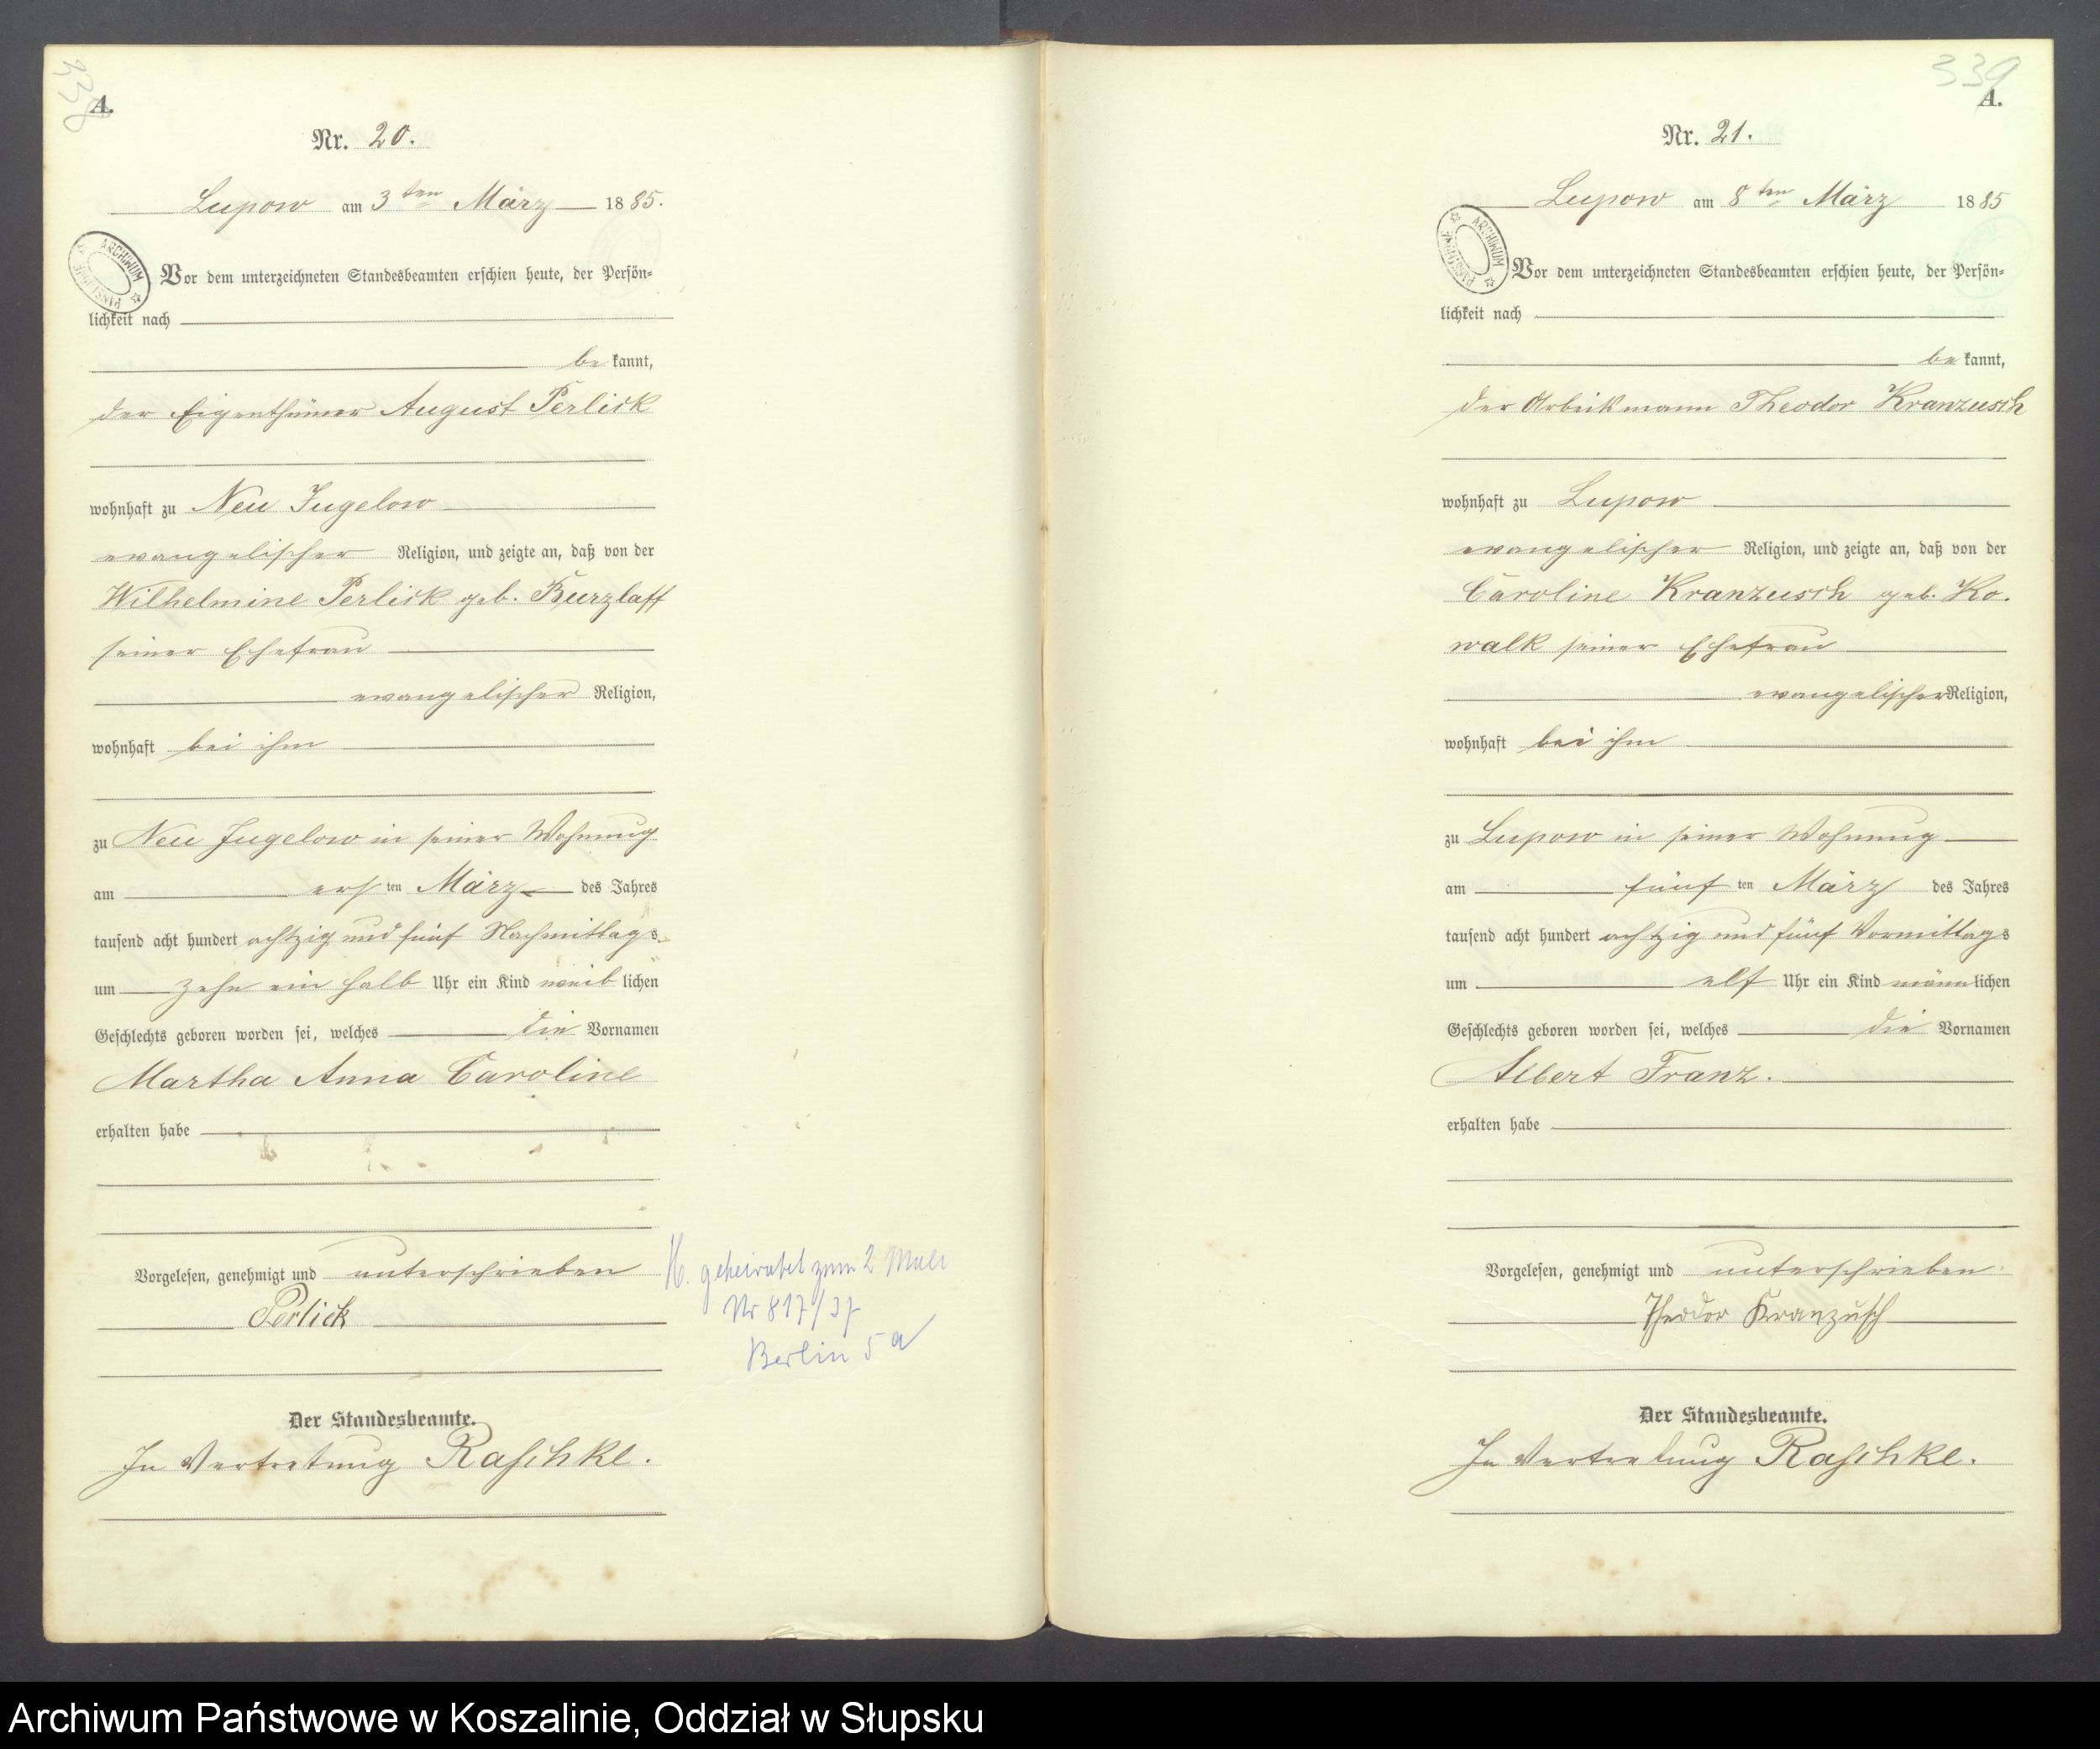 338
A.
Nr. 20.
Lupow am 3ten März 1885.
ARCHIWUM
Vor dem unterzeichneten Standesbeamten erschien heute, der Persön-
lichkeit nach
be kannt,
der Eigenthümer August Perlick
wohnhaft zu Neu Jugelow
evangelischer Religion, und zeigte an, daß von der
Wilhelmine Perlick geb. Kurzlaff
seiner Ehefrau
evangelischer Religion,
wohnhaft bei ihm
zu Neu Jugelow in seiner Wohnung
am ersten März des Jahres
tausend acht hundert achtzig und fünf Nachmittags
um zehn ein halb Uhr ein Kind weib lichen
Geschlechts geboren worden sei, welches die Vornamen
Martha Anna Caroline
erhalten habe
Vorgelesen, genehmigt und unterschrieben
Perlick
geheiratet zum 2 Male
Nr 817/37
Berlin 5a
Der Standesbeamte.
In Vertretung Raschke.
339
A.
Nr. 21.
Lupow am 8ten März 1885
ARCHIWUM
Vor dem unterzeichneten Standesbeamten erschien heute, der Persön-
lichkeit nach
be kannt,
der Arbeitmann Theodor Kranzusch
wohnhaft zu Lupow
evangelischer Religion, und zeigte an, daß von der
Caroline Kranzusch geb. Ko.
walk seiner Ehefrau
evangelischer Religion,
wohnhaft bei ihm
zu Lupow in seiner Wohnung
am fünf ten März des Jahres
tausend acht hundert achtzig und fünf Vormittags
um elf Uhr ein Kind männ lichen
Geschlechts geboren worden sei, welches die Vornamen
Albert Franz.
erhalten habe
Vorgelesen, genehmigt und unterschrieben
Theodor Kranzusch
Der Standesbeamte.
In Vertretung Raschke.
Archiwum Państwowe w Koszalinie, Oddział w Słupsku